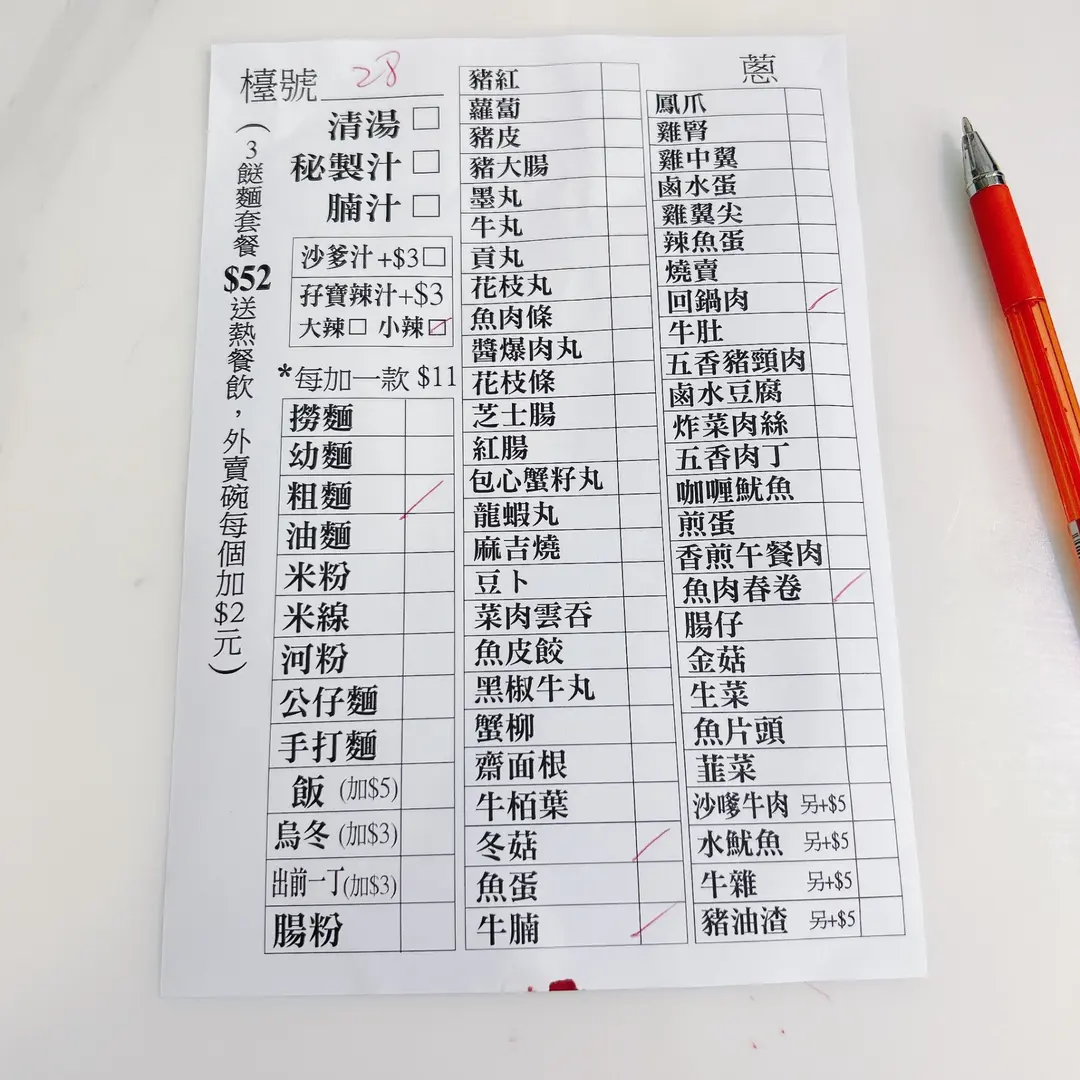 檯號 28
清湯 □
秘製汁 □
腩汁 □
(3餸麵套餐$52送熱餐飲，外賣碗每個加$2元)
沙爹汁+$3□
孖寶辣汁+$3
大辣□ 小辣☑
*每加一款 $11
撈麵
幼麵
粗麵 ✓
油麵
米粉
米線
河粉
公仔麵
手打麵
飯 (加$5)
烏冬 (加$3)
出前一丁(加$3)
腸粉
豬紅
蘿蔔
豬皮
豬大腸
墨丸
牛丸
貢丸
花枝丸
魚肉條
醬爆肉丸
花枝條
芝士腸
紅腸
包心蟹籽丸
龍蝦丸
麻吉燒
豆卜
菜肉雲吞
魚皮餃
黑椒牛丸
蟹柳
齋面根
牛栢葉
冬菇 ✓
魚蛋
牛腩 ✓
蔥
鳳爪
雞腎
雞中翼
鹵水蛋
雞翼尖
辣魚蛋
燒賣
回鍋肉 ✓
牛肚
五香豬頸肉
鹵水豆腐
炸菜肉絲
五香肉丁
咖喱魷魚
煎蛋
香煎午餐肉
魚肉春卷 ✓
腸仔
金菇
生菜
魚片頭
韮菜
沙嗲牛肉 另+$5
水魷魚 另+$5
牛雜 另+$5
豬油渣 另+$5